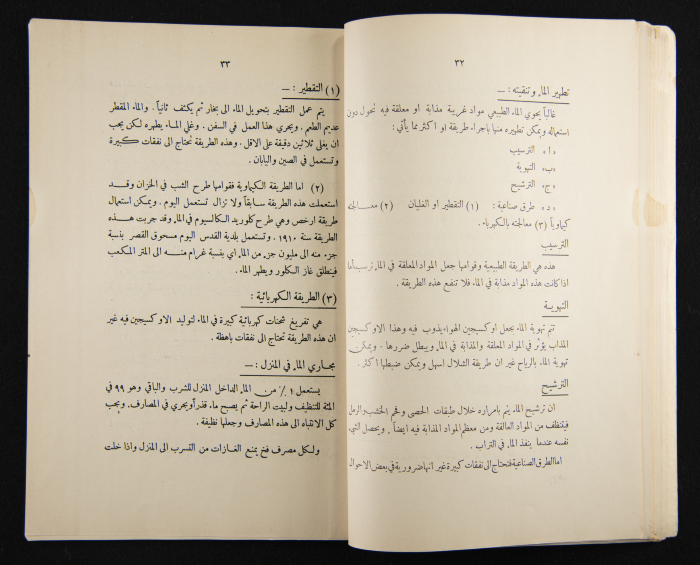 ٣٢
تطهير الماء وتنقيته : —
غالباً يحوي الماء الطبيعي مواد غريبة مذابة او معلقة فيه تحول دون
استعماله ويمكن تطهيره منها باجراء طريقة او اكثر مما يأتي :
«ا» الترسيب
«ب» التهوية
«ج» الترشيح
«د» طرق صناعية : (١) التقطير او الغليان (٢) معالجته
كيماوياً (٣) معالجته بالكهرباء .
الترسيب
هذه هي الطريقة الطبيعية وقوامها جعل المواد المعلقة في الماء ترسب أما
اذا كانت هذه المواد مذابة في الماء فلا تنفع هذه الطريقة .
التهوية
تتم تهوية الماء بجعل اوكسجين الهواء يذوب فيه وهذا الاوكسجين
المذاب يؤثر في المواد المعلقة والمذابة في الماء ويبطل ضررها . ويمكن
تهوية الماء بالرياح غير ان طريقة الشلال اسهل ويمكن ضبطها اكثر .
الترشيح
ان ترشيح الماء يتم بامراره خلال طبقات الحصى وفحم الخشب والرمل
فيتنظف من المواد العالقة ومن معظم المواد المذابة فيه ايضاً . ويحصل الشيء
نفسه عندما ينفذ الماء في التراب .
اما الطرق الصناعية فتحتاج الى نفقات كبيرة غير انها ضرورية في بعض الاحوال
٣٣
(١) التقطير : —
يتم عمل التقطير بتحويل الماء الى بخار ثم يكثف ثانياً . والماء المقطر
عديم الطعم . ويجري هذا العمل في السفن . وغلي الماء يطهره لكن يجب
ان يغلى ثلاثين دقيقة على الاقل . وهذه الطريقة تحتاج الى نفقات كبيرة
وتستعمل في الصين واليابان .
(٢) اما الطريقة الكيماوية فقوامها طرح الشب في الخزان وقد
استعملت هذه الطريقة سابقاً ولا تزال تستعمل اليوم . ويمكن استعمال
طريقة ارخص وهي طرح كلوريد الكالسيوم في الماء وقد جربت هذه
الطريقة سنة ١٩١٠ . وتستعمل بلدية القدس اليوم مسحوق القصر بنسبة
جزء منه الى مليون جزء من الماء اي بنسبة غرام منه الى المتر المكعب
فينطلق غاز الكلور ويطهر الماء .
(٣) الطريقة الكهربائية :
هي تفريغ شحنات كهربائية كبيرة في الماء لتوليد الاوكسيجين فيه غير
ان هذه الطريقة تحتاج الى نفقات باهظة .
مجاري الماء في المنزل : —
يستعمل ١ ٪ من الماء الداخل المنزل للشرب والباقي وهو ٩٩ في
المئة للتنظيف ولبيت الراحة ثم يصبح ماء قذراً ويجري في المصارف . ويجب
كل الانتباه الى هذه المصارف وجعلها نظيفة .
ولكل مصرف فخ يمنع الغازات من التسرب الى المنزل واذا خلت